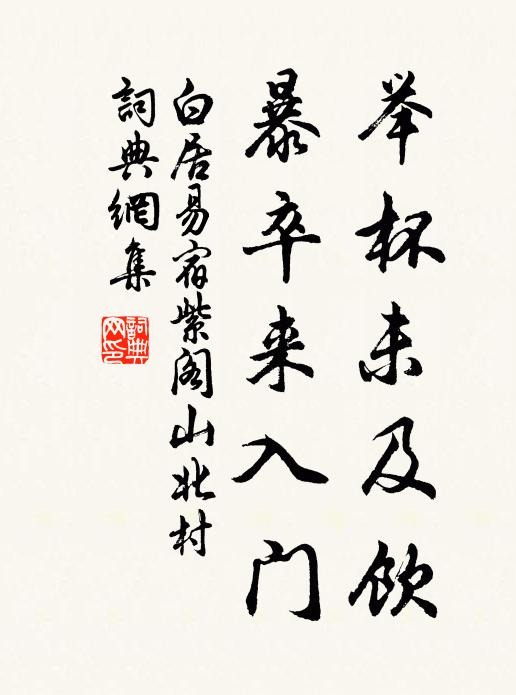 举杯未及饮
暴卒来入门
白居易宿紫阁山北村
詞典網集
詞典
网印